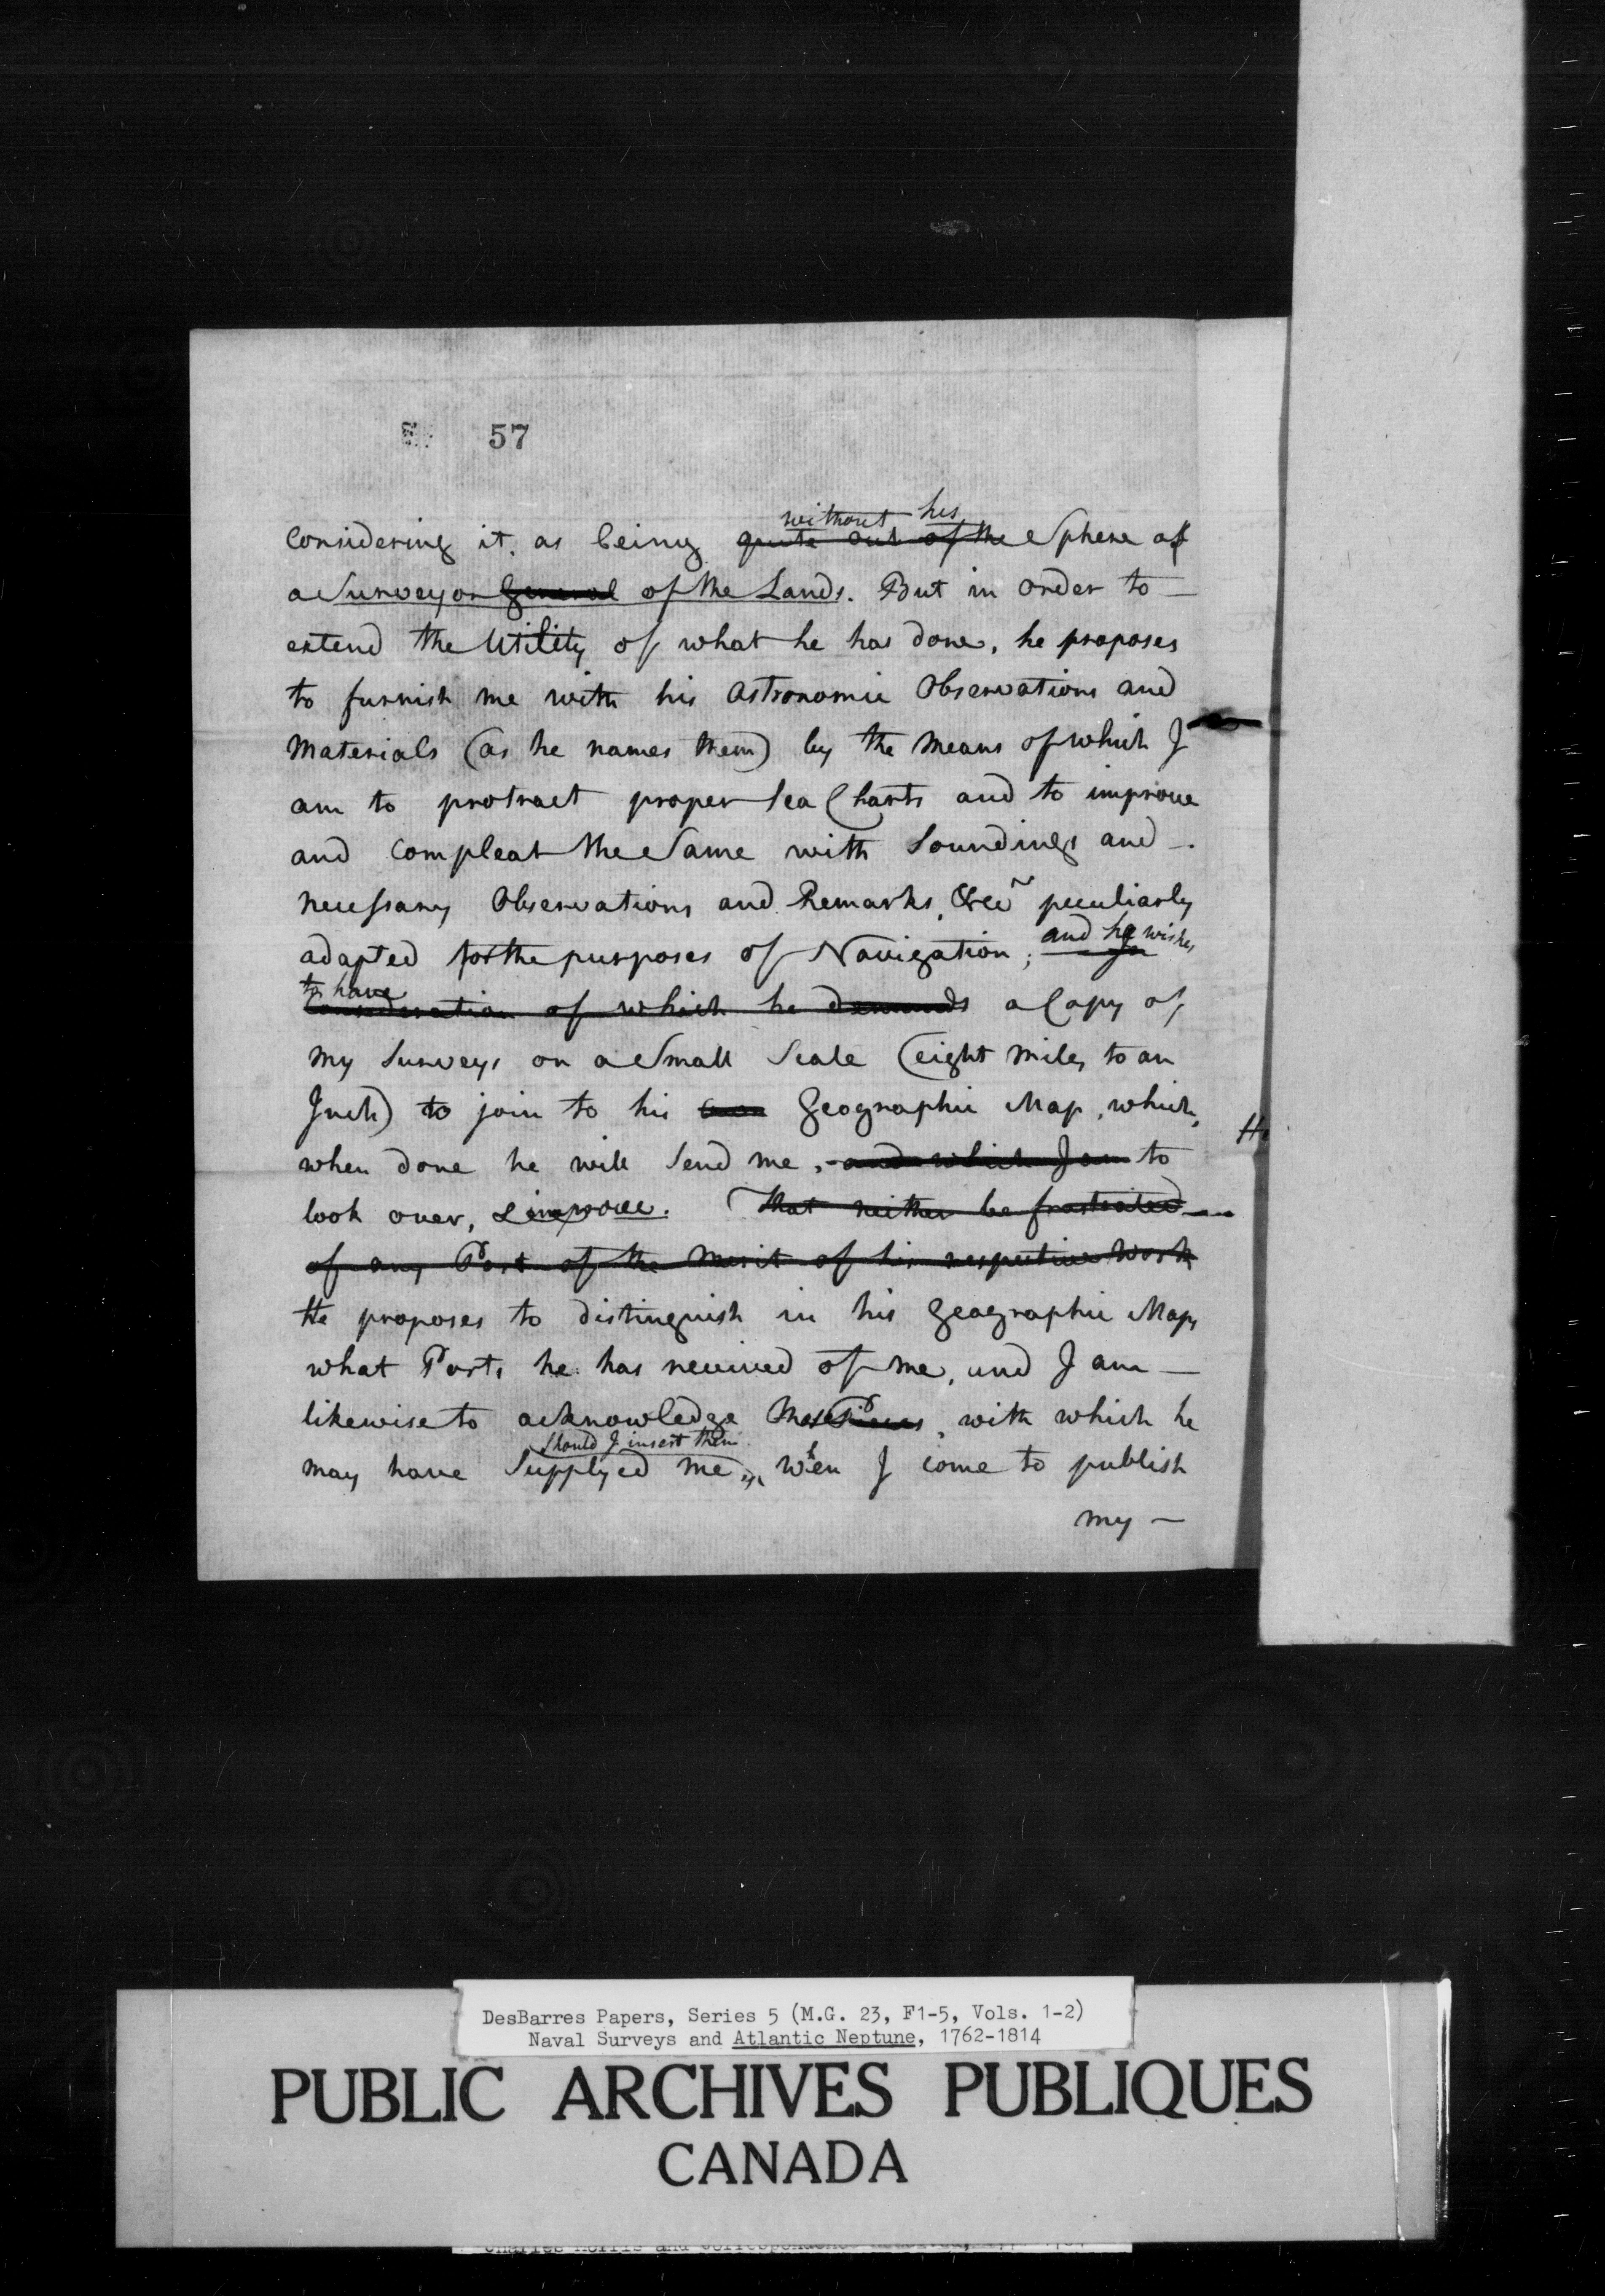 57
without his
Considering it, as being quite out of the Sphere of
a Surveyor General of the Lands. But in order to —
extend the Utility of what he has done, he proposes
to furnish me with his Astronomic Observations and
Materials (as he names them) by the means of which I
am to protract proper Sea Charts and to improve
and compleat the Same with Soundings and —.
necessary Observations and Remarks, &ca peculiarly
and he wishes
adapted for the purposes of Navigation; in
to have
Consideration of which he demands a Copy of
my Surveys on a Small Scale (eight miles to an
Inch) to join to his Geographic Map, which,
when done he will Send me, and which I am to
look over, & improve. That neither be frustrated —
of any Part of the Merit of his respective Work
He proposes to distinguish in his Geographic Map,
what Parts he has received of me, and I am —
likewise to acknowledge those Pieces, with which he
Should I insert them
may have Supplyed me, when I come to publish
my —
DesBarres Papers, Series 5 (M.G. 23, F1-5, Vols. 1-2)
Naval Surveys and Atlantic Neptune, 1762-1814
PUBLIC ARCHIVES PUBLIQUES
CANADA